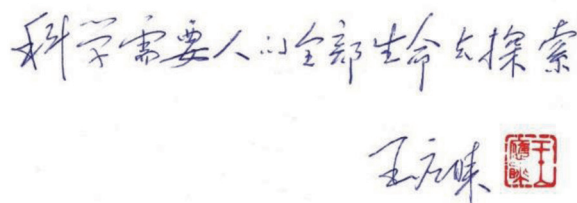 科学需要人的全部生命去探索
王应睐
王应睐